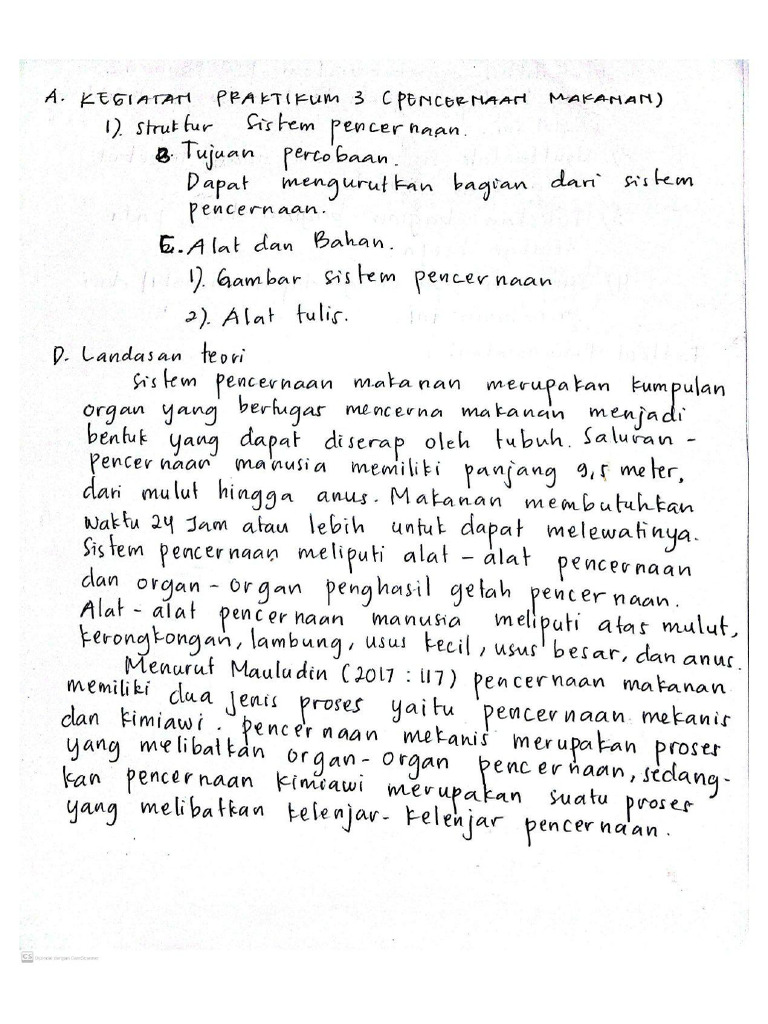 A. KEGIATAN PRAKTIKUM 3 (PENCERNAAN MAKANAN)
1). Struktur Sistem pencernaan.
B. Tujuan percobaan.
Dapat mengurutkan bagian dari sistem
pencernaan.
C. Alat dan Bahan.
1). Gambar sistem pencernaan
2). Alat tulis.
D. Landasan teori
Sistem pencernaan makanan merupakan kumpulan
organ yang bertugas mencerna makanan menjadi
bentuk yang dapat diserap oleh tubuh. Saluran-
pencernaan manusia memiliki panjang 9,5 meter,
dari mulut hingga anus. Makanan membutuhkan
waktu 24 Jam atau lebih untuk dapat melewatinya.
Sistem pencernaan meliputi alat-alat pencernaan
dan organ-organ penghasil getah pencernaan.
Alat-alat pencernaan manusia meliputi atas mulut,
kerongkongan, lambung, usus kecil, usus besar, dan anus.
Menurut Mauludin (2017 : 117) pencernaan makanan
memiliki dua jenis proses yaitu pencernaan mekanis
dan kimiawi. pencernaan mekanis merupakan proses
yang melibatkan organ-organ pencernaan, sedang-
kan pencernaan kimiawi merupakan suatu proses
yang melibatkan kelenjar-kelenjar pencernaan.
CS Dipindai dengan CamScanner